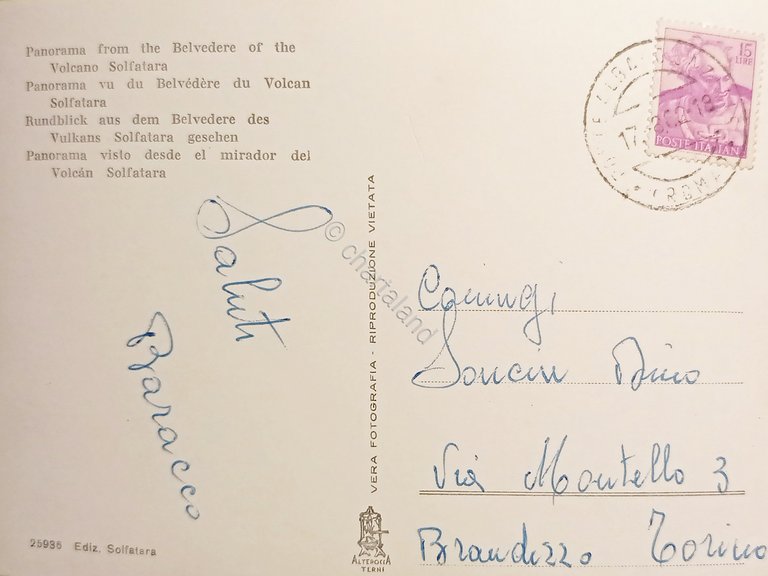 Panorama from the Belvedere of the
Volcano Solfatara
Panorama vu du Belvédère du Volcan
Solfatara
Rundblick aus dem Belvedere des
Vulkans Solfatara gesehen
Panorama visto desde el mirador del
Volcán Solfatara
Saluti
Baracco
25936 Ediz. Solfatara
VERA FOTOGRAFIA - RIPRODUZIONE VIETATA
ALTEROCCA
TERNI
© chartaland
15
LIRE
POSTE ITALIANE
(ROMA)
Coniugi
Soncin Dino
Via Montello 3
Brandizzo Torino